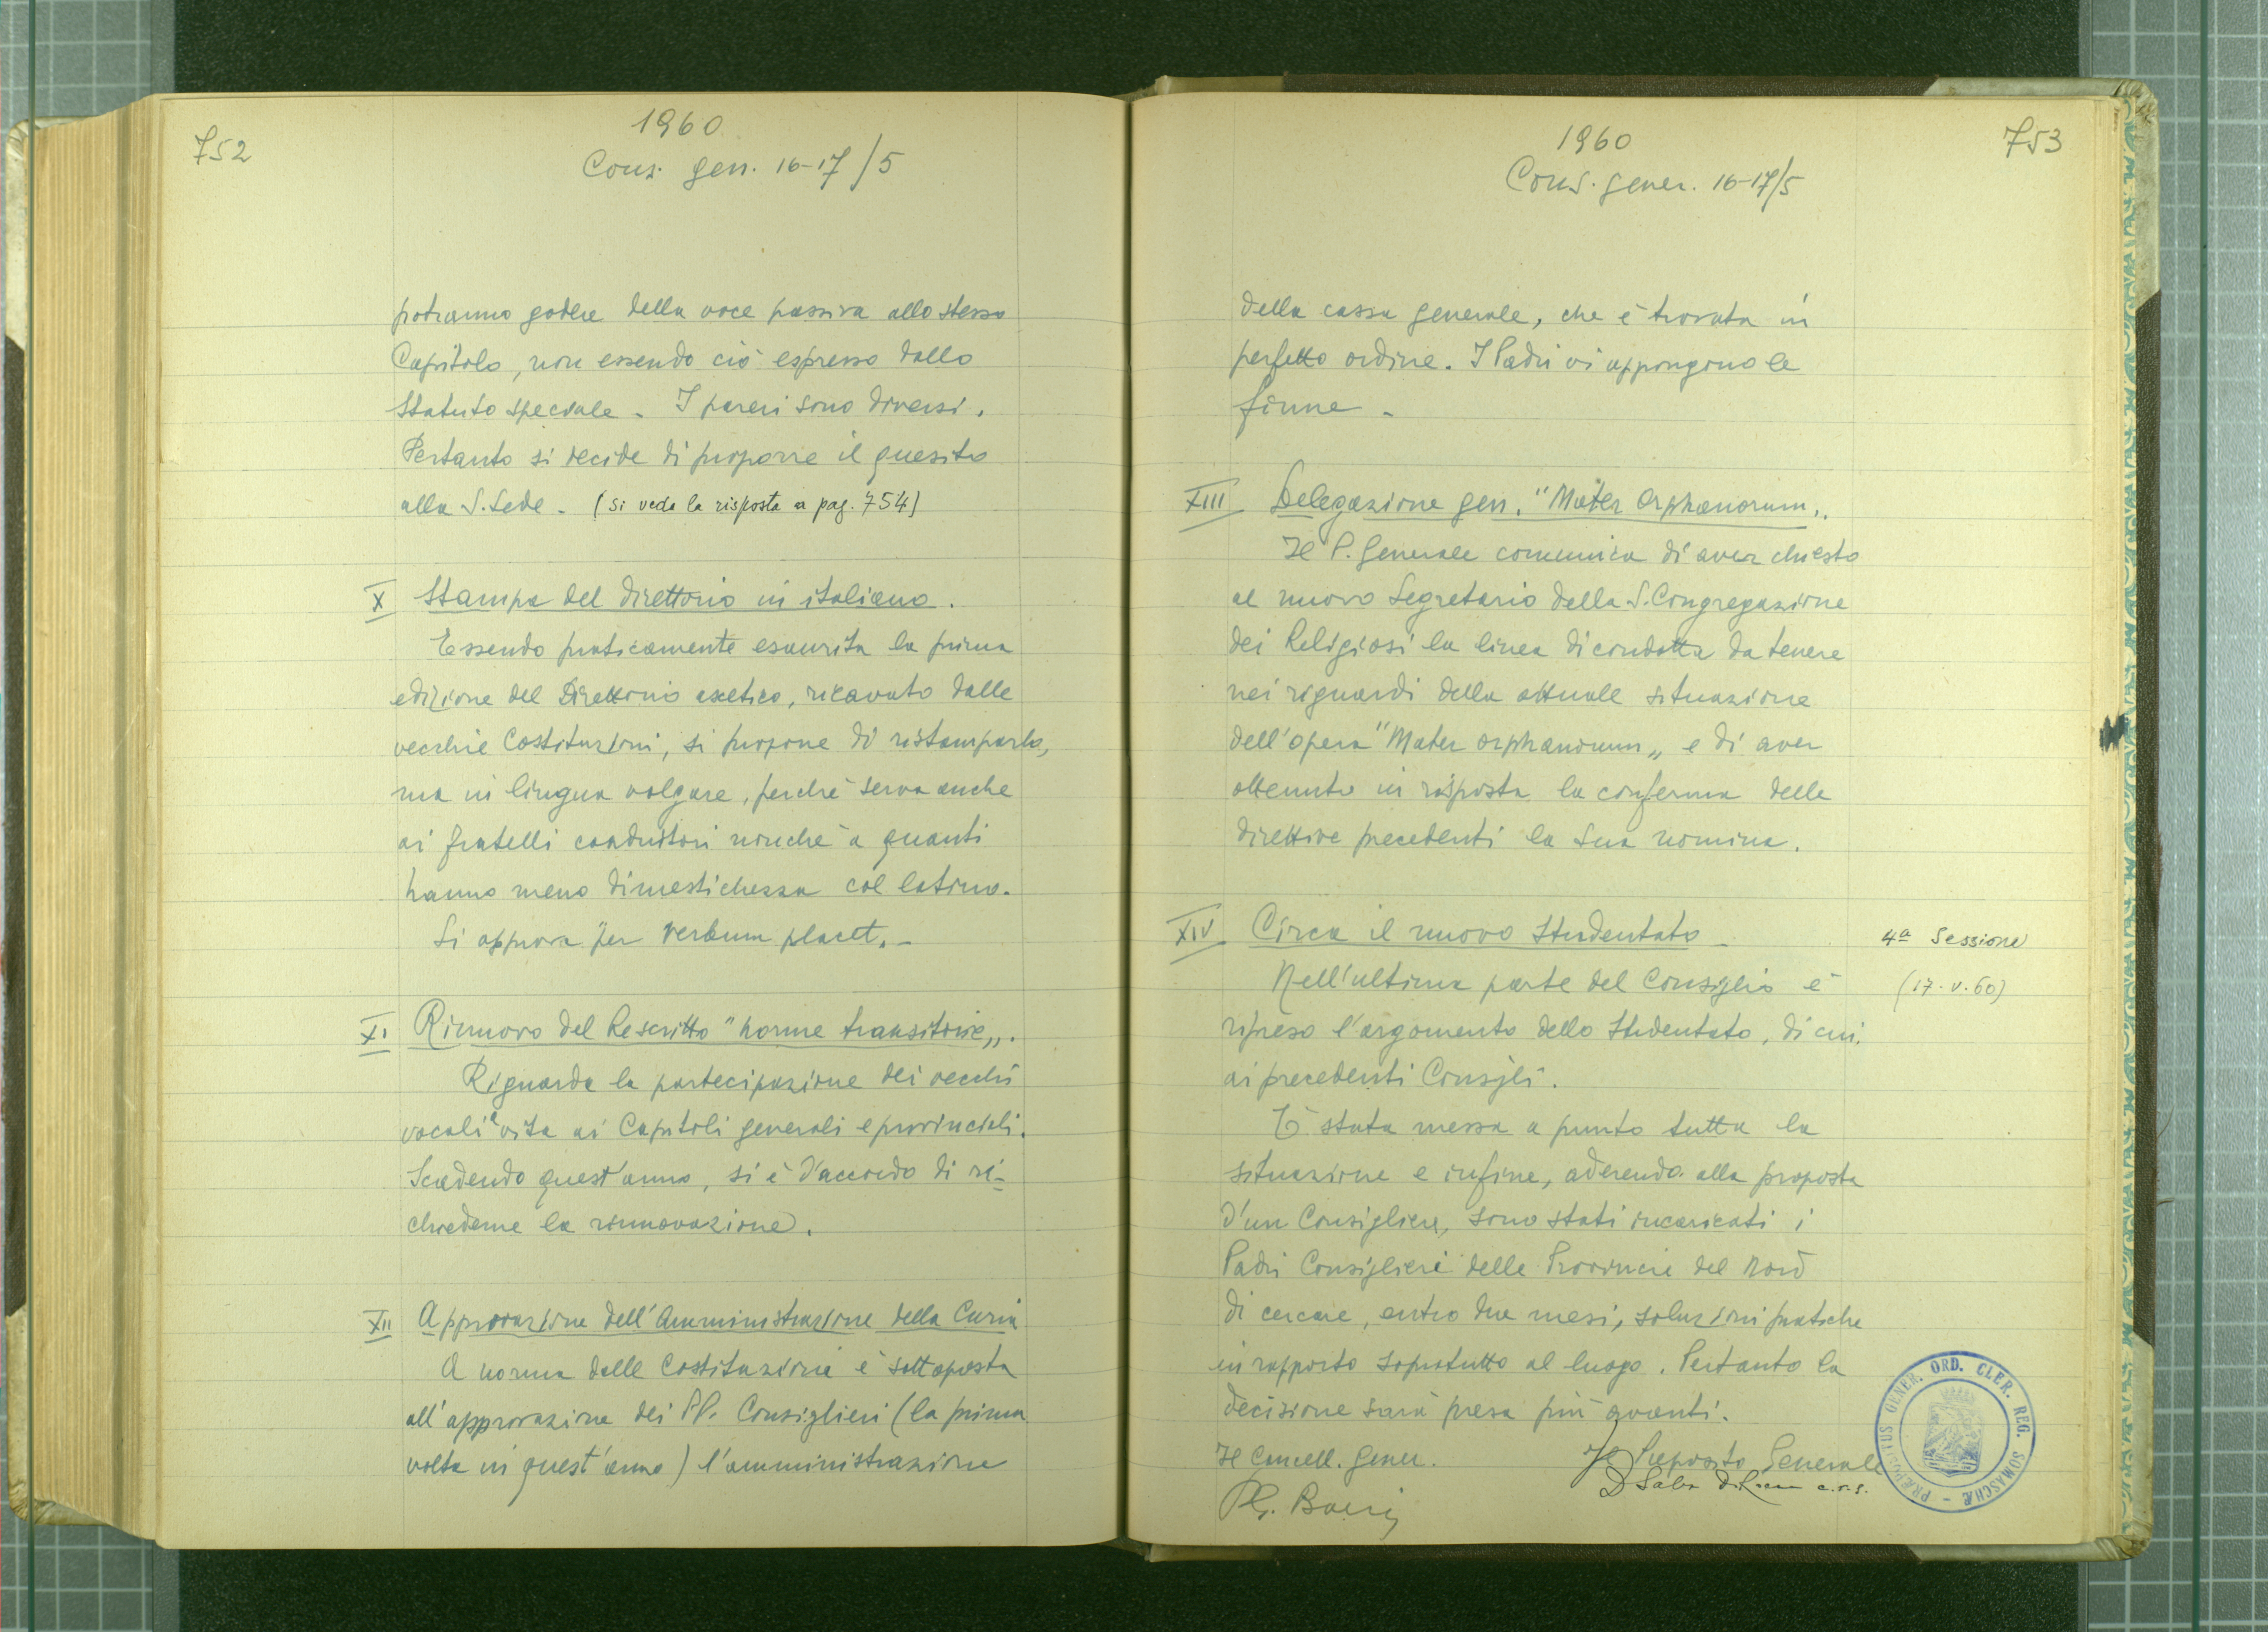 752
1960
Cons. gen. 16-17/5
potranno godere della voce passiva allo stesso
Capitolo, non essendo ciò espresso dallo
Statuto speciale. I pareri sono diversi.
Pertanto si decide di proporre il quesito
alla S. Sede. (si veda la risposta a pag. 754)
X Stampa del direttorio in italiano.
Essendo praticamente esaurita la prima
edizione del Direttorio ascetico, ricavato dalle
vecchie Costituzioni, si propone di ristamparlo,
ma in lingua volgare, perchè serva anche
ai fratelli coadiutori nonchè a quanti
hanno meno dimestichezza col latino.
Si approva per verbum placet.-
XI Rinnovo del Rescritto "norme transitorie".
Riguarda la partecipazione dei vecchi
vocali a vita ai Capitoli generali e provinciali.
Scadendo quest'anno, si è d'accordo di ri-
chiederne la rinnovazione.
XII Approvazione dell'Amministrazione della Curia
A norma delle Costituzioni è sottoposta
all'approvazione dei PP. Consiglieri (la prima
volta in quest'anno) l'amministrazione
753
1960
Cons. gener. 16-17/5
della cassa generale, che è trovata in
perfetto ordine. I Padri vi appongono le
firme -
XIII Delegazione gen. "Mater Orphanorum".
Il P. Generale comunica di aver chiesto
al nuovo Segretario della S. Congregazione
dei Religiosi la linea di condotta da tenere
nei riguardi della attuale situazione
dell'opera "Mater orphanorum" e di aver
ottenuto in risposta la conferma delle
direttive precedenti la sua nomina.
XIV Circa il nuovo Studentato -
4ª Sessione
(17.V.60)
Nell'ultima parte del Consiglio è
ripreso l'argomento dello Studentato, di cui
ai precedenti Consigli.
È stata messa a punto tutta la
situazione e infine, aderendo alla proposta
d'un Consigliere, sono stati incaricati i
Padri Consiglieri delle Provincie del Nord
di cercare, entro due mesi, soluzioni pratiche
in rapporto sopratutto al luogo. Pertanto la
decisione sarà presa più avanti.
Il Cancell. Gener.
Il Preposito Generale
c.r.s.
PRÆPOSITUS GENER. ORD. CLER. REG. SOMASCHÆ